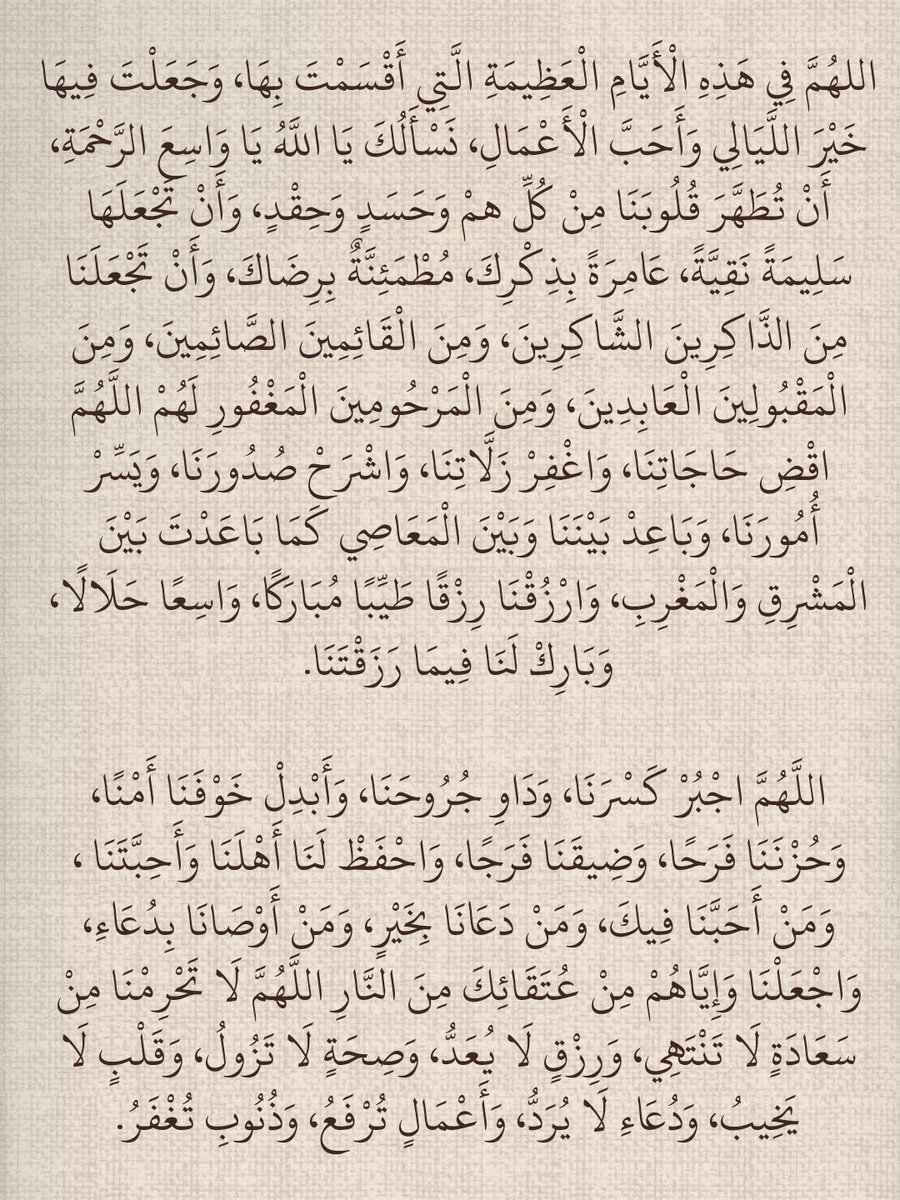 اللهُمَّ فِي هَذِهِ الْأَيَّامِ الْعَظِيمَةِ الَّتِي أَقْسَمْتَ بِهَا، وَجَعَلْتَ فِيهَا
خَيْرَ اللَّيَالِي وَأَحَبَّ الْأَعْمَالِ، نَسْأَلُكَ يَا اللَّهُ يَا وَاسِعَ الرَّحْمَةِ،
أَنْ تُطَهَّرَ قُلُوبَنَا مِنْ كُلِّ همْ وَحَسَدٍ وَحِقْدٍ، وَأَنْ تَجْعَلَهَا
سَلِيمَةً نَقِيَّةً، عَامِرَةً بِذِكْرِكَ، مُطْمَئِنَّةٌ بِرِضَاكَ، وَأَنْ تَجْعَلَنَا
مِنَ الذَّاكِرِينَ الشَّاكِرِينَ، وَمِنَ الْقَائِمِينَ الصَّائِمِينَ، وَمِنَ
الْمَقْبُولِينَ الْعَابِدِينَ، وَمِنَ الْمَرْحُومِينَ الْمَغْفُورِ لَهُمْ اللَّهُمَّ
اقْضِ حَاجَاتِنَا، وَاغْفِرْ زَلَّاتِنَا، وَاشْرَحْ صُدُورَنَا، وَيَسِّرْ
أُمُورَنَا، وَبَاعِدْ بَيْنَنَا وَبَيْنَ الْمَعَاصِي كَمَا بَاعَدْتَ بَيْنَ
الْمَشْرِقِ وَالْمَغْرِبِ، وَارْزُقْنَا رِزْقًا طَيِّبًا مُبَارَكًا، وَاسِعًا حَلَالًا،
وَبَارِكْ لَنَا فِيمَا رَزَقْتَنَا.
اللَّهُمَّ اجْبُرْ كَسْرَنَا، وَدَاوِ جُرُوحَنَا، وَأَبْدِلْ خَوْفَنَا أَمْنًا،
وَحُزْنَنَا فَرَحًا، وَضِيقَنَا فَرَجًا، وَاحْفَظْ لَنَا أَهْلَنَا وَأَحِبَّتَنَا ،
وَمَنْ أَحَبَّنَا فِيكَ، وَمَنْ دَعَانَا بِخَيْرٍ، وَمَنْ أَوْصَانَا بِدُعَاءِ،
وَاجْعَلْنَا وَإِيَّاهُمْ مِنْ عُتَقَائِكَ مِنَ النَّارِ اللَّهُمَّ لَا تَحْرِمْنَا مِنْ
سَعَادَةٍ لَا تَنْتَهِي، وَرِزْقٍ لَا يُعَدُّ، وَصِحَةٍ لَا تَزُولُ، وَقَلْبٍ لَا
يَخِيبُ، وَدُعَاءِ لَا يُرَدُّ، وَأَعْمَالٍ تُرْفَعُ، وَذُنُوبِ تُغْفَرُ.